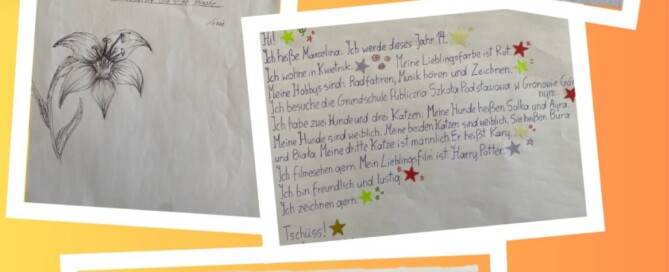 Hi!
Ich heiße Marcelina. Ich werde dieses Jahr 14.
Ich wohne in Kwietnik. Meine Lieblingsfarbe ist Rot.
Meine Hobbys sind: Radfahren, Musik hören und Zeichnen.
Ich besuche die Grundschule Publiczna Szkoła Podstawowa w Gronowie Gór
nym.
Ich habe zwei Hunde und drei Katzen. Meine Hunde heißen Salka und Ayra.
Meine Hunde sind weiblich. Meine beiden Katzen sind weiblich. Sie heißen Bura
und Biała. Meine dritte Katze ist männlich. Er heißt Kary.
Ich filmesehen gern. Mein Lieblingsfilm ist: Harry Potter.
Ich bin freundlich und lustig.
Ich zeichnen gern.
Tschüss!